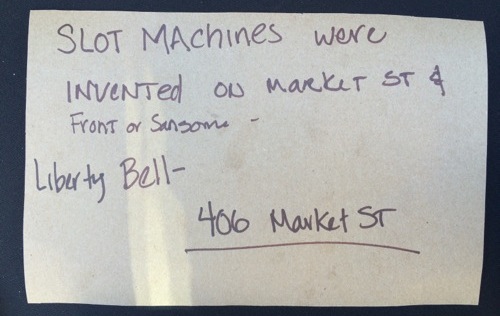 SLOT MACHINES were
INVENTED ON MARKET ST &
FRONT or Sansome -
Liberty Bell-
406 Market ST